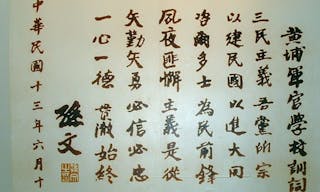 黃埔軍官學校訓詞
三民主義吾黨所宗
以建民國以進大同
咨爾多士為民前鋒
夙夜匪懈主義是從
矢勤矢勇必信必忠
一心一德貫徹始終
孫文
中華民國十三年六月十